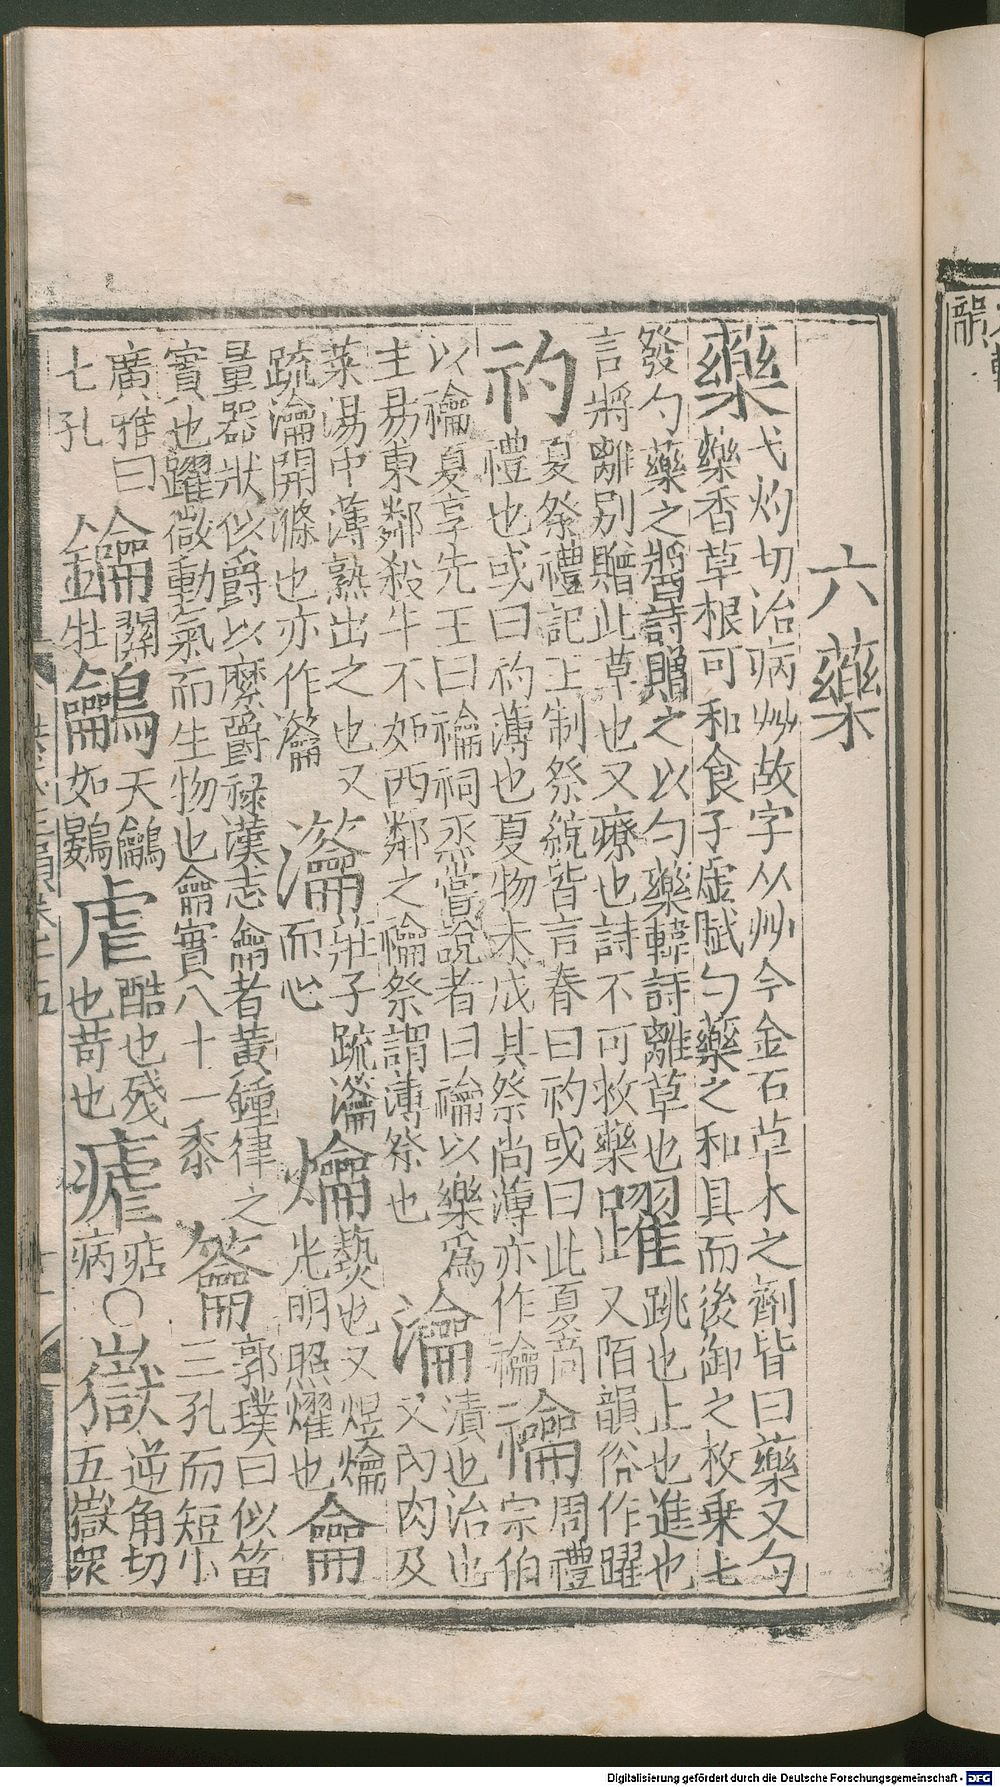 六藥
藥
弋灼切治病艸故字从艸今金石草木之劑皆曰藥又勺
藥香草根可和食子虛賦勺藥之和具而後御之枚乗七
發勺藥之醬詩贈之以勺藥韓詩離草也
言將離別贈此草也又療也詩不可救藥
躍
跳也上也進也
又陌韻俗作躍
礿
夏祭禮記王制祭統皆言春曰礿或曰此夏商
禮也或曰礿薄也夏物未成其祭尚薄亦作禴
禴
周禮
宗伯
以禴夏享先王曰禴祠烝嘗說者曰禴以樂爲
主易東鄰殺牛不如西鄰之禴祭謂薄祭也
瀹
漬也治也
又內肉及
菜湯中薄熟出之也又
疏瀹開滌也亦作䉛
䉛
莊子疏瀹
而心
爚
爇也又焜爚
光明照燿也
龠
量器狀似爵以縻爵禄漢志龠者黃鍾律之
實也躍微動氣而生物也龠實八十一黍
籥
郭璞曰似笛
三孔而短小
廣雅曰
七孔
鑰
關
牡
鸙
天鸙
如鷃
虐
酷也殘
也苛也
瘧
痁
病
○
嶽
逆角切
五嶽眾